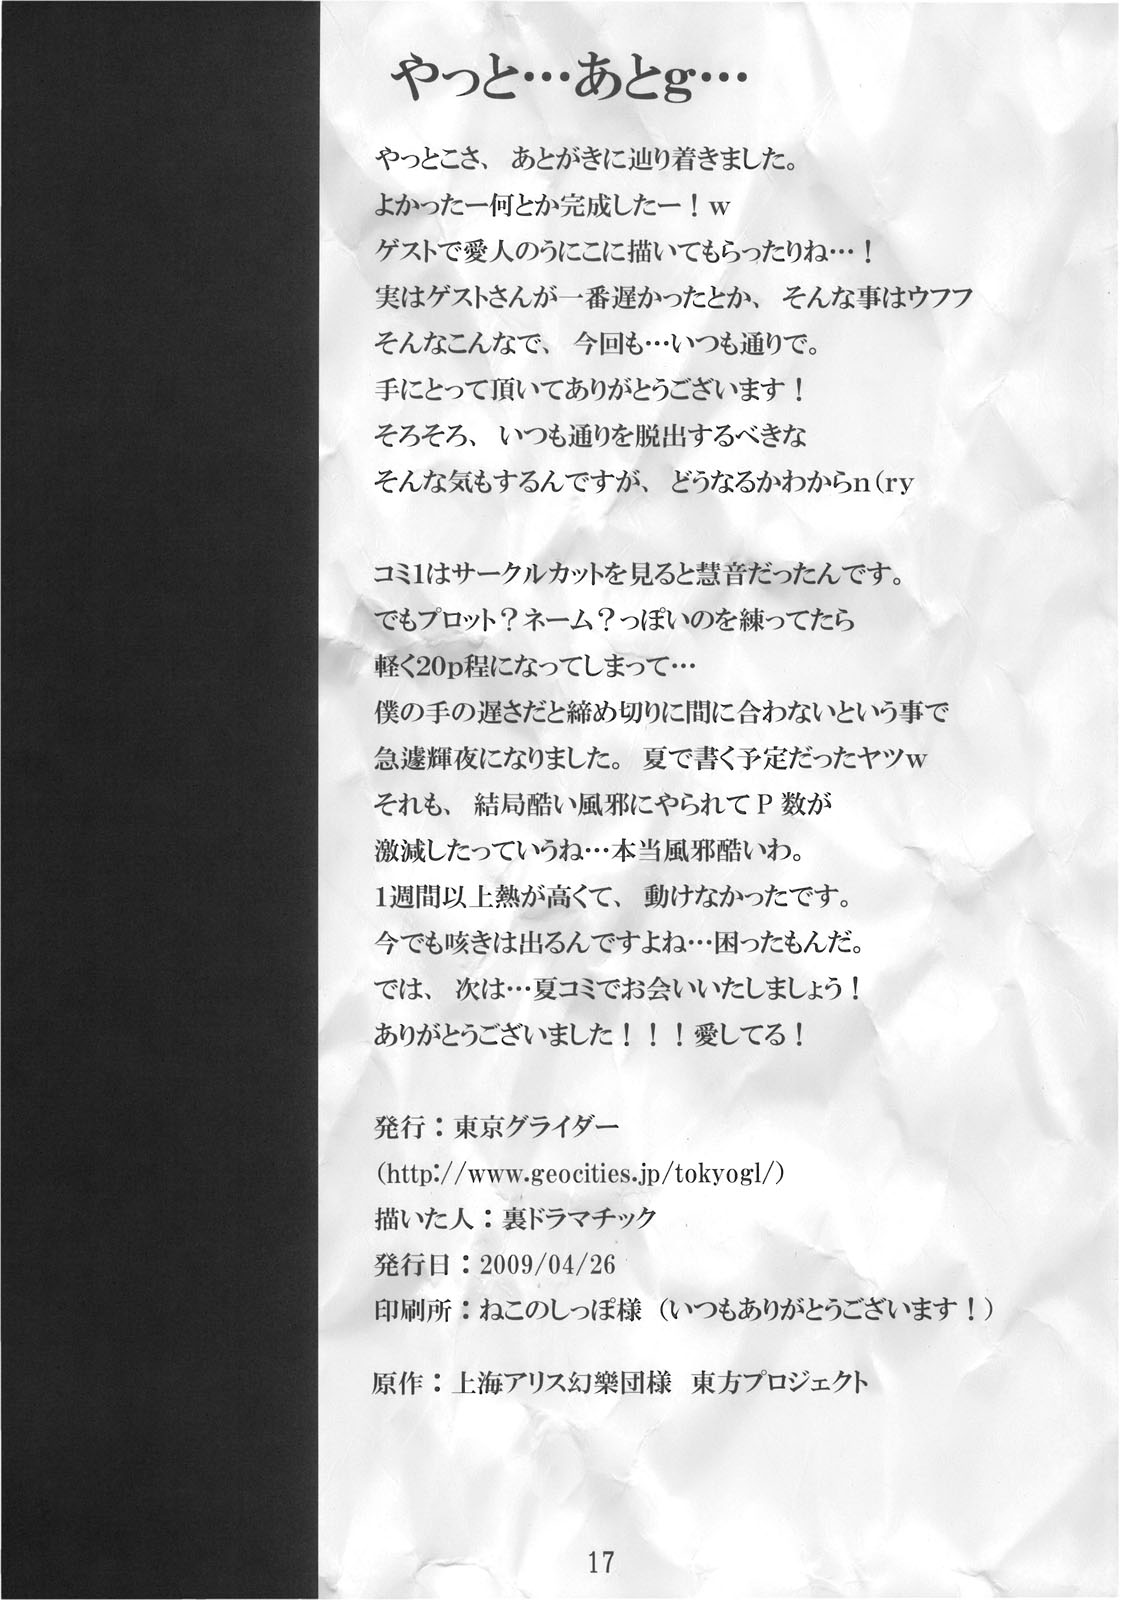 やっと…あとg…
やっとこさ、あとがきに辿り着きました。
よかったー何とか完成したー！w
ゲストで愛人のうにこに描いてもらったりね…！
実はゲストさんが一番遅かったとか、そんな事はウフフ
そんなこんなで、今回も…いつも通りで。
手にとって頂いてありがとうございます！
そろそろ、いつも通りを脱出するべきな
そんな気もするんですが、どうなるかわからn(ry
コミ1はサークルカットを見ると慧音だったんです。
でもプロット？ネーム？っぽいのを練ってたら
軽く20p程になってしまって…
僕の手の遅さだと締め切りに間に合わないという事で
急遽輝夜になりました。夏で書く予定だったヤツw
それも、結局酷い風邪にやられてP数が
激減したっていうね…本当風邪酷いわ。
1週間以上熱が高くて、動けなかったです。
今でも咳きは出るんですよね…困ったもんだ。
では、次は…夏コミでお会いいたしましょう！
ありがとうございました！！！愛してる！
発行：東京グライダー
(http://www.geocities.jp/tokyogl/)
描いた人：裏ドラマチック
発行日：2009/04/26
印刷所：ねこのしっぽ様（いつもありがとうございます！）
原作：上海アリス幻樂団様 東方プロジェクト
17